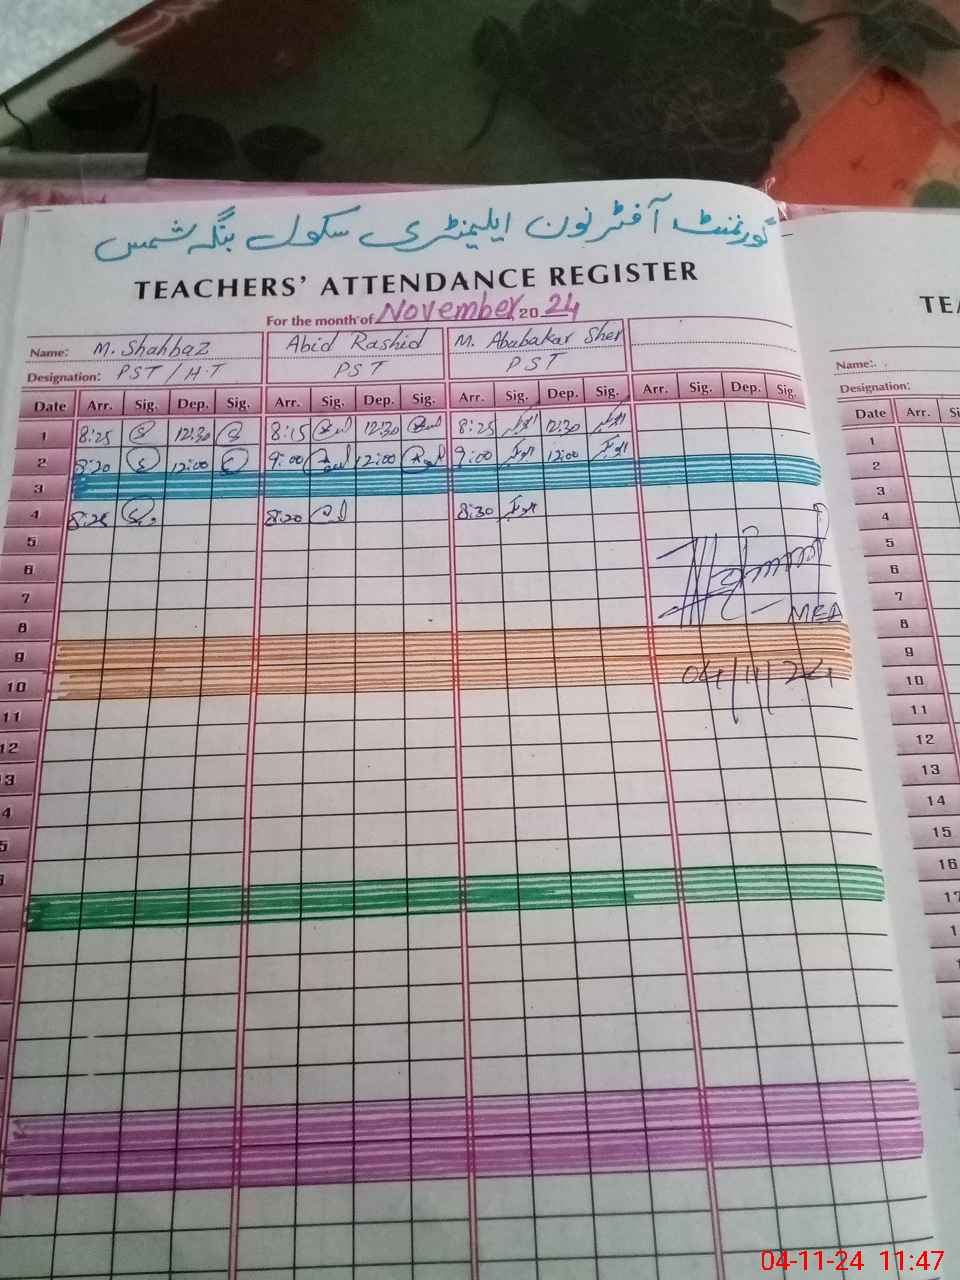 گورنمنٹ آفٹر نون ایلیمنٹری سکول بنگہ شمس
TEACHERS' ATTENDANCE REGISTER
For the month of November 2024
Name: M. Shahbaz Abid Rashid M. Ababakar Sher
Designation: PST / H.T PST PST
Date Arr. Sig. Dep. Sig. Arr. Sig. Dep. Sig. Arr. Sig. Dep. Sig. Arr. Sig. Dep. Sig.
1 8:25 12:30 8:15 12:30 8:25 12:30
2 8:20 12:00 9:00 12:00 9:00 12:00
3
4 8:25 8:20 8:30
5
6
7
MEA
8
9
04/11/24
10
11
12
13
14
15
TEA
Name:
Designation:
Date Arr. Si
1
2
3
4
5
6
7
8
9
10
11
12
13
14
15
16
17
04-11-24 11:47